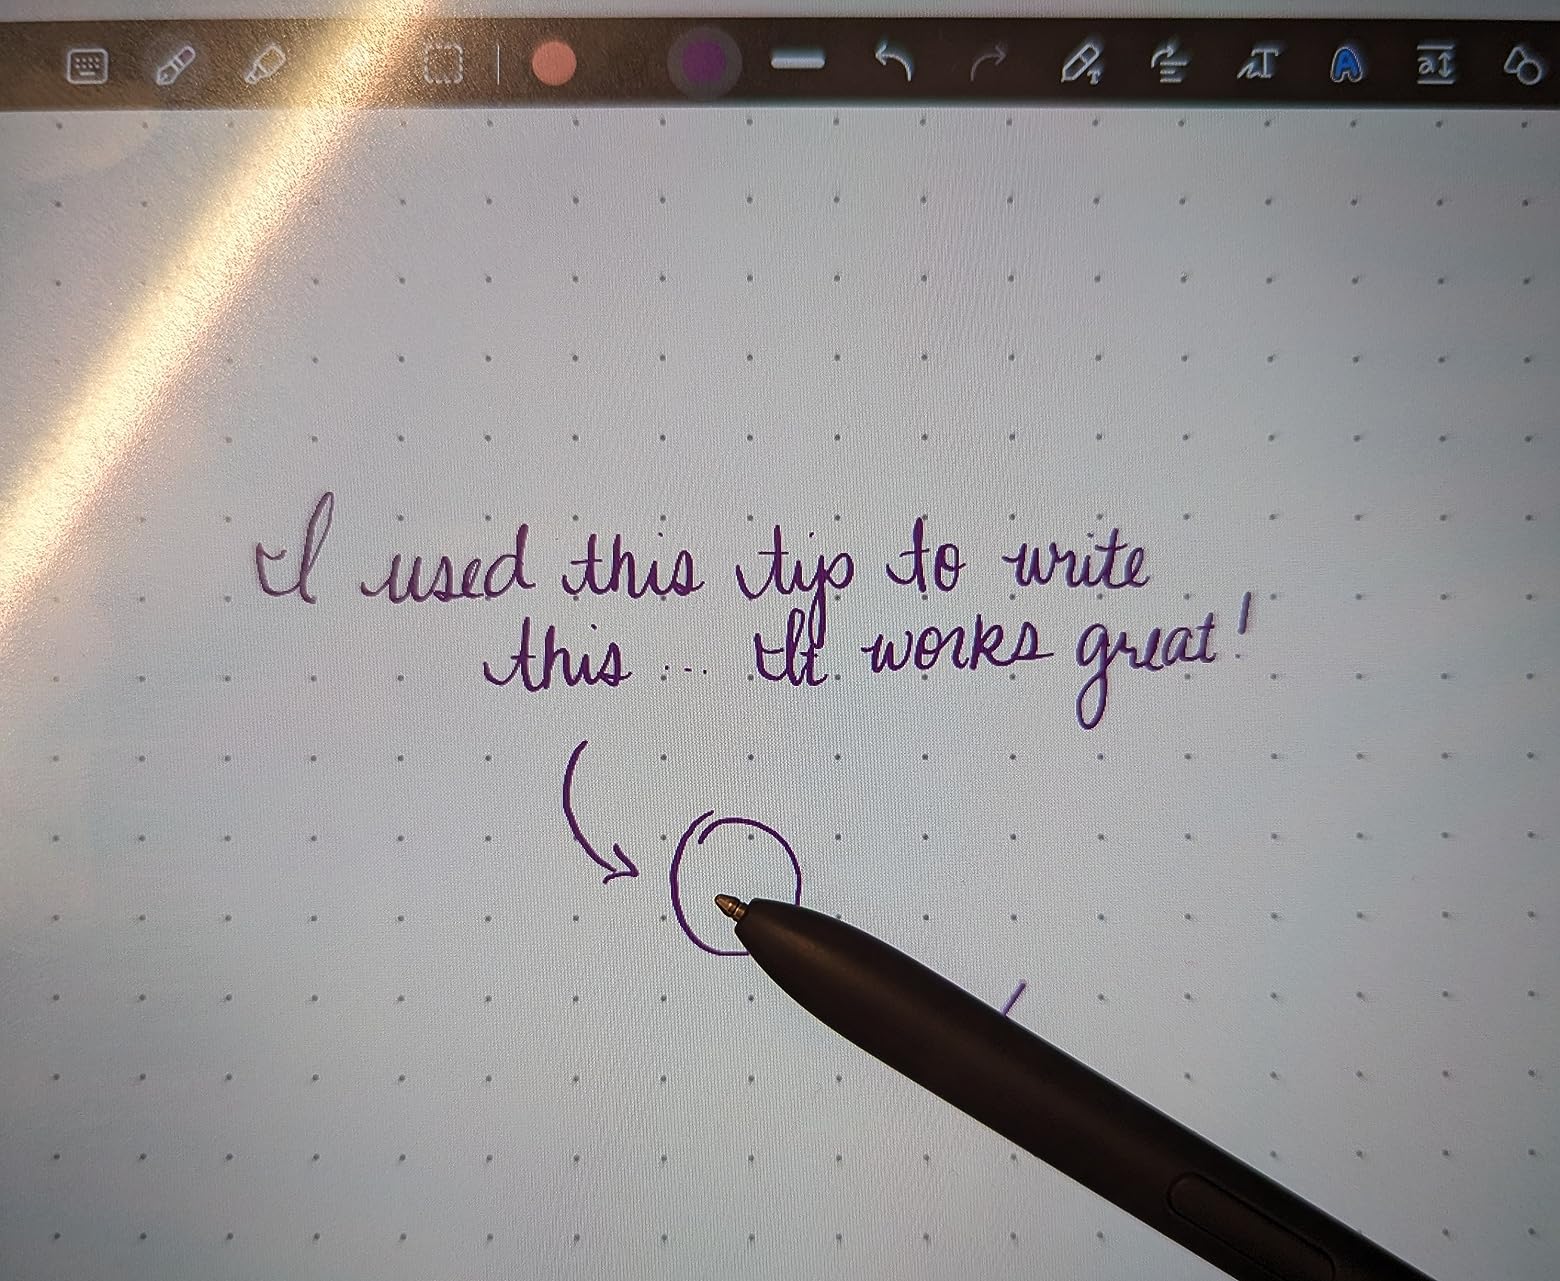 I used this tip to write
this ... It works great!